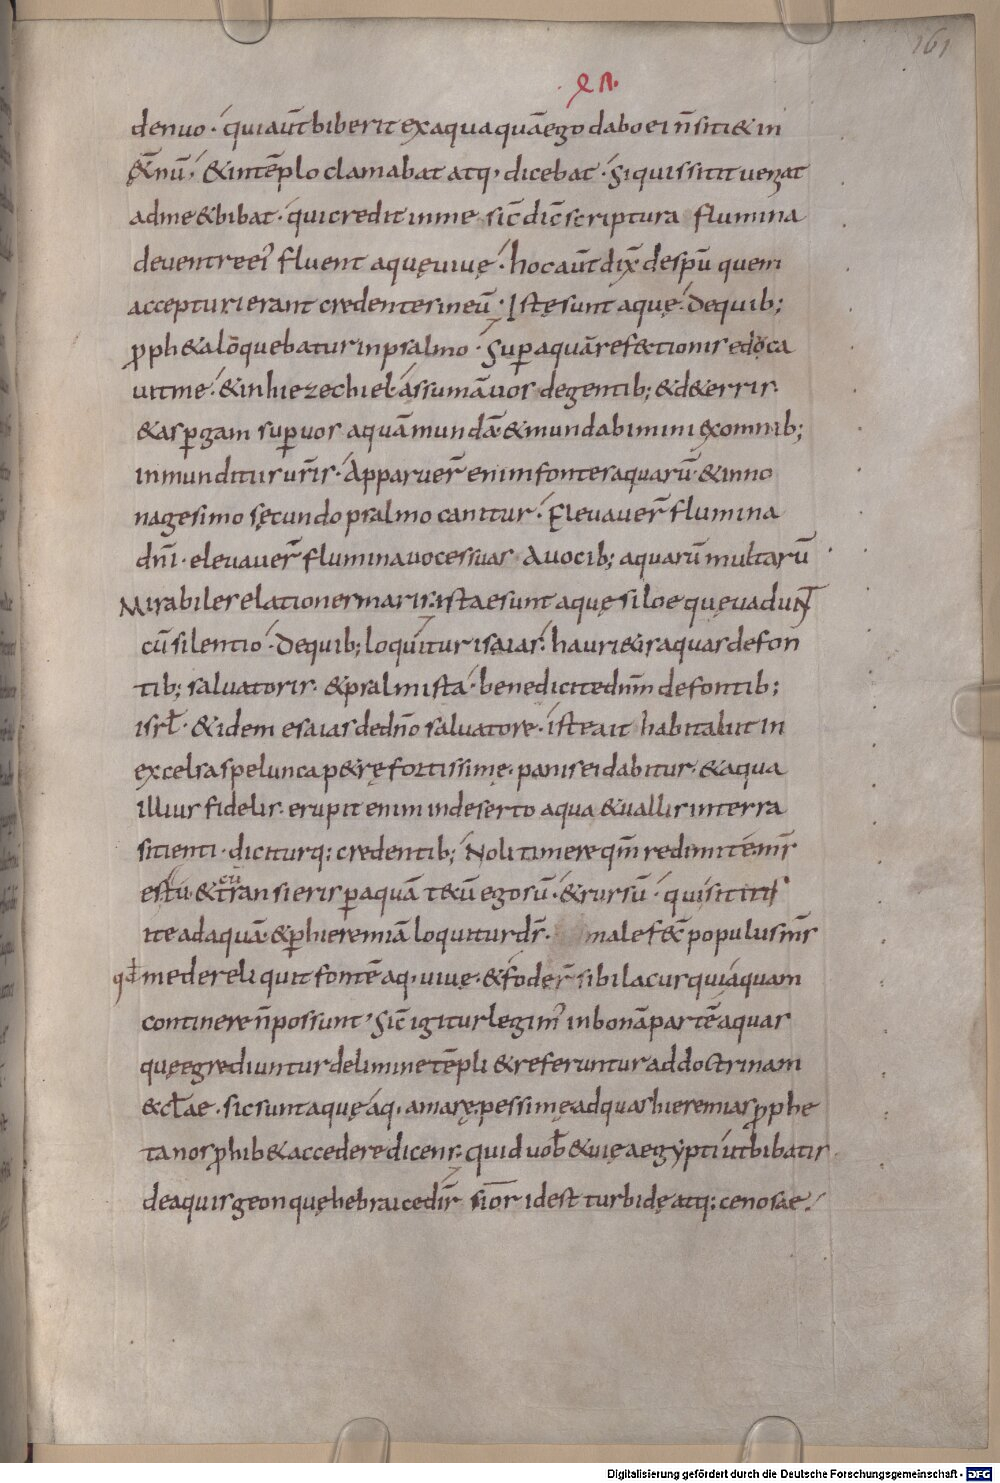 161
denuo · qui aūt biberit ex aqua quā ego dabo ei n̄ sitiet in
ęt̄nū · & in tēplo clamabat atq; dicebat · Si quis sitit veniat
ad me & bibat · qui credit in me sic̄ dic̄ scriptura flumina
de ventre ei᾽ fluent aquę vivę · hoc aūt dix̄ de sp̄u quem
accepturi erant credentes in eū · Istę sunt aquę · De quib;
ꝓph&a loquebatur in psalmo · Suꝑ aquā ref&ctionis educa
vit me · & in hiezechiel · assumā vos de gentib; & de terris ·
& asꝑgam suꝑ vos aquā mundā & mundabimini ex omnib;
inmunditiis vr̄is · Apparuer̄ enim fontes aquarū & in no
nagesimo sęcundo psalmo canitur · Elevaver̄ flumina
dn̄i · elevaver̄ flumina voces suas A vocib; aquarū multarū
Mirabiles elationes maris · ista e sunt aquę siloe quę vadunt
cū silentio · De quib; loquitur isaias · hauri&is aquas de fon
tib; salvatoris · & psalmista · benedicite dn̄m de fontib;
isrł · & idem esaias de dn̄o salvatore · iste ait habitabit in
excelsa spelunca p&rę fortissimę · panis ei dabitur · & aqua
illius fidelis · erupit enim in deserto aqua & vallis in terra
sitienti · diciturq: credentib; Noli timere qm̄ redimi te · m̄s
es tu · & cū transieris ꝑ aquā tecū ego sū · & rursū · qui sititis
ite ad aquā · & ꝑ hieremiā loquitur dr̄ · male fec̄ populus m̄s
qđ me dereliquit fontē aq, vivę · & foder̄ sibi lacus qui aquam
continere n̄ possunt · Sic̄ igitur legim᾽ in bonā partē aquas
quę egrediuntur de limine tēpli & referuntur ad doctrinam
& cłae · sic sunt aquę aq, amarę pessimę ad quas hieremias ꝓphe
ta nos ꝓhib& accedere dicens · quid vob̄ & vię aegypti ut bibatis
de aquis geon quę hebraice dir̄ sior idest turbidę atq: cenosae ·
Digitalisierung gefördert durch die Deutsche Forschungsgemeinschaft - DFG